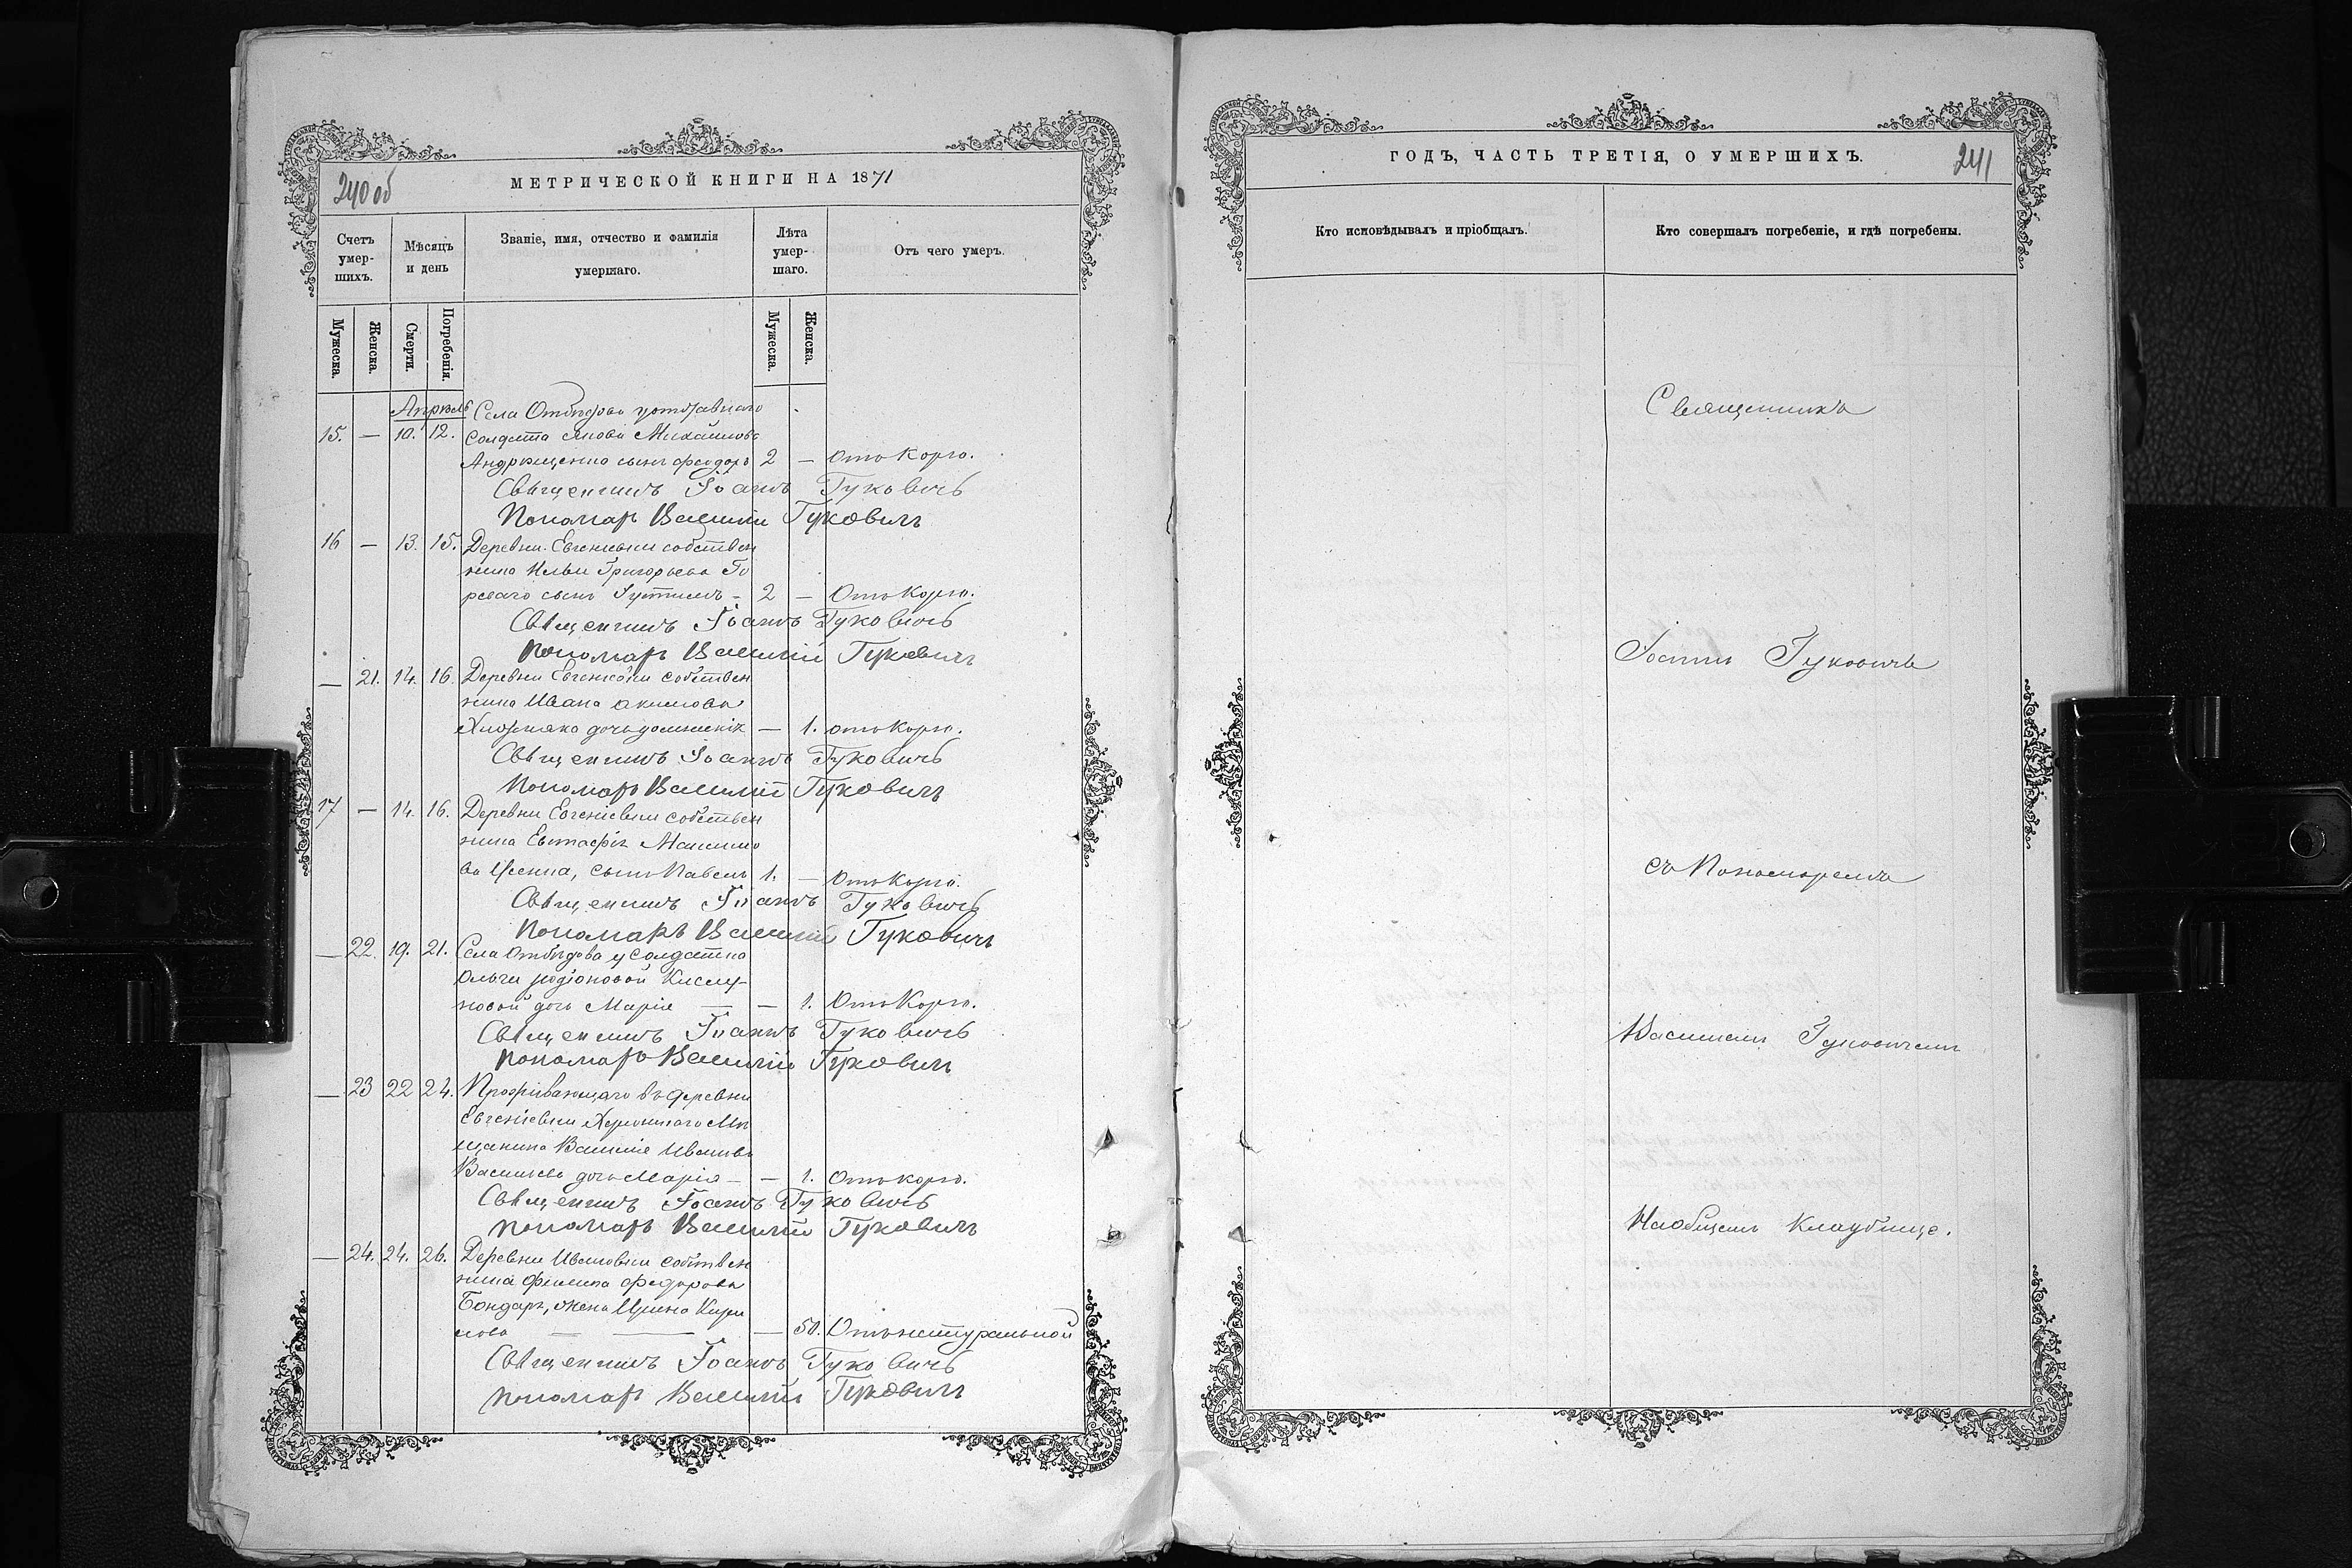 240 об
МЕТРИЧЕСКОЙ КНИГИ НА 1871
Счетъ умер-шихъ.
Мѣсяцъ и день
Званіе, имя, отчество и фамилія умершаго.
Лѣта умер-шаго.
Отъ чего умеръ.
Мужеска.
Женска.
Смерти.
Погребенія.
Мужеска.
Женска.
Апрѣль Села Отбѣдова
15. — 10. 12. Солдата Михайлова
сынъ Феодоръ 2 — Отъ Кору.
Священникъ Іоаннъ Гуковичъ
Пономарь Василій Гуковичъ
16 — 13. 15. Деревни Евгеніевки собствен
ника Ильи Григорьева Го
сынъ Іустинъ - 2 — Отъ Кору.
Священникъ Іоаннъ Гуковичъ
Пономарь Василій Гуковичъ
— 21. 14. 16. Деревни Евгеніевки собствен
ника Ивана Акимова
дочь — 1. отъ Кору.
Священникъ Іоаннъ Гуковичъ
Пономарь Василій Гуковичъ
17 — 14. 16. Деревни Евгеніевки собствен
ника Евстафія Максимо
ва сынъ Павелъ 1. — Отъ Кору.
Священникъ Іоаннъ Гуковичъ
Пономарь Василій Гуковичъ
— 22. 19. 21. Села Отбѣдова у Солдатки
Ольги Родіоновой
новой дочь Марія — — 1. Отъ Кору.
Священникъ Іоаннъ Гуковичъ
Пономарь Василій Гуковичъ
— 23 22 24. Проживающаго въ деревни
Евгеніевки Херсонскаго Мѣ
щанина Василія Иванова
Васильева дочь Марія — — 1. Отъ кору.
Священникъ Іоаннъ Гуковичъ
Пономарь Василій Гуковичъ
— 24. 24. 26. Деревни Ивановки собствен
ника Филипа Федорова
Бондарь, жена Ирина Кири
лова — — — 50. Отъ натуральной
Священникъ Іоаннъ Гуковичъ
Пономарь Василій Гуковичъ
ГОДЪ, ЧАСТЬ ТРЕТІЯ, О УМЕРШИХЪ.
241
Кто исповѣдывалъ и пріобщалъ.
Кто совершалъ погребеніе, и гдѣ погребены.
Священникъ
Іоаннъ Гуковичъ
съ Пономаремъ
Василіемъ Гуковичемъ
На общемъ Кладбище.